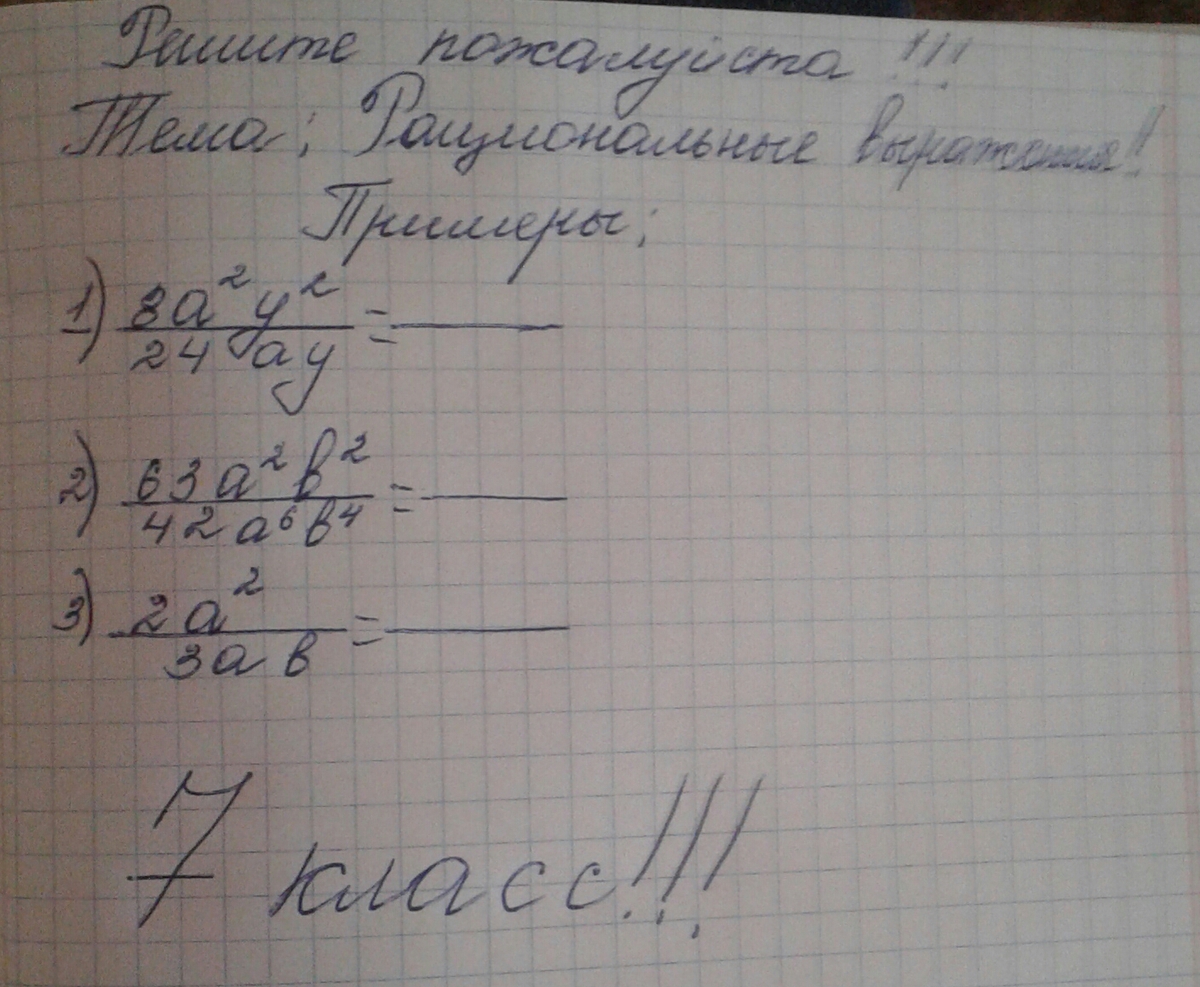 Решите пожалуйста !!!
Тема: Рациональные выражения!!
Примеры:
1) 8a²y² / 24 ay = ———
2) 63a²b² / 42a⁶b⁴ = ———
3) 2a² / 3ab = ———
7 класс!!!